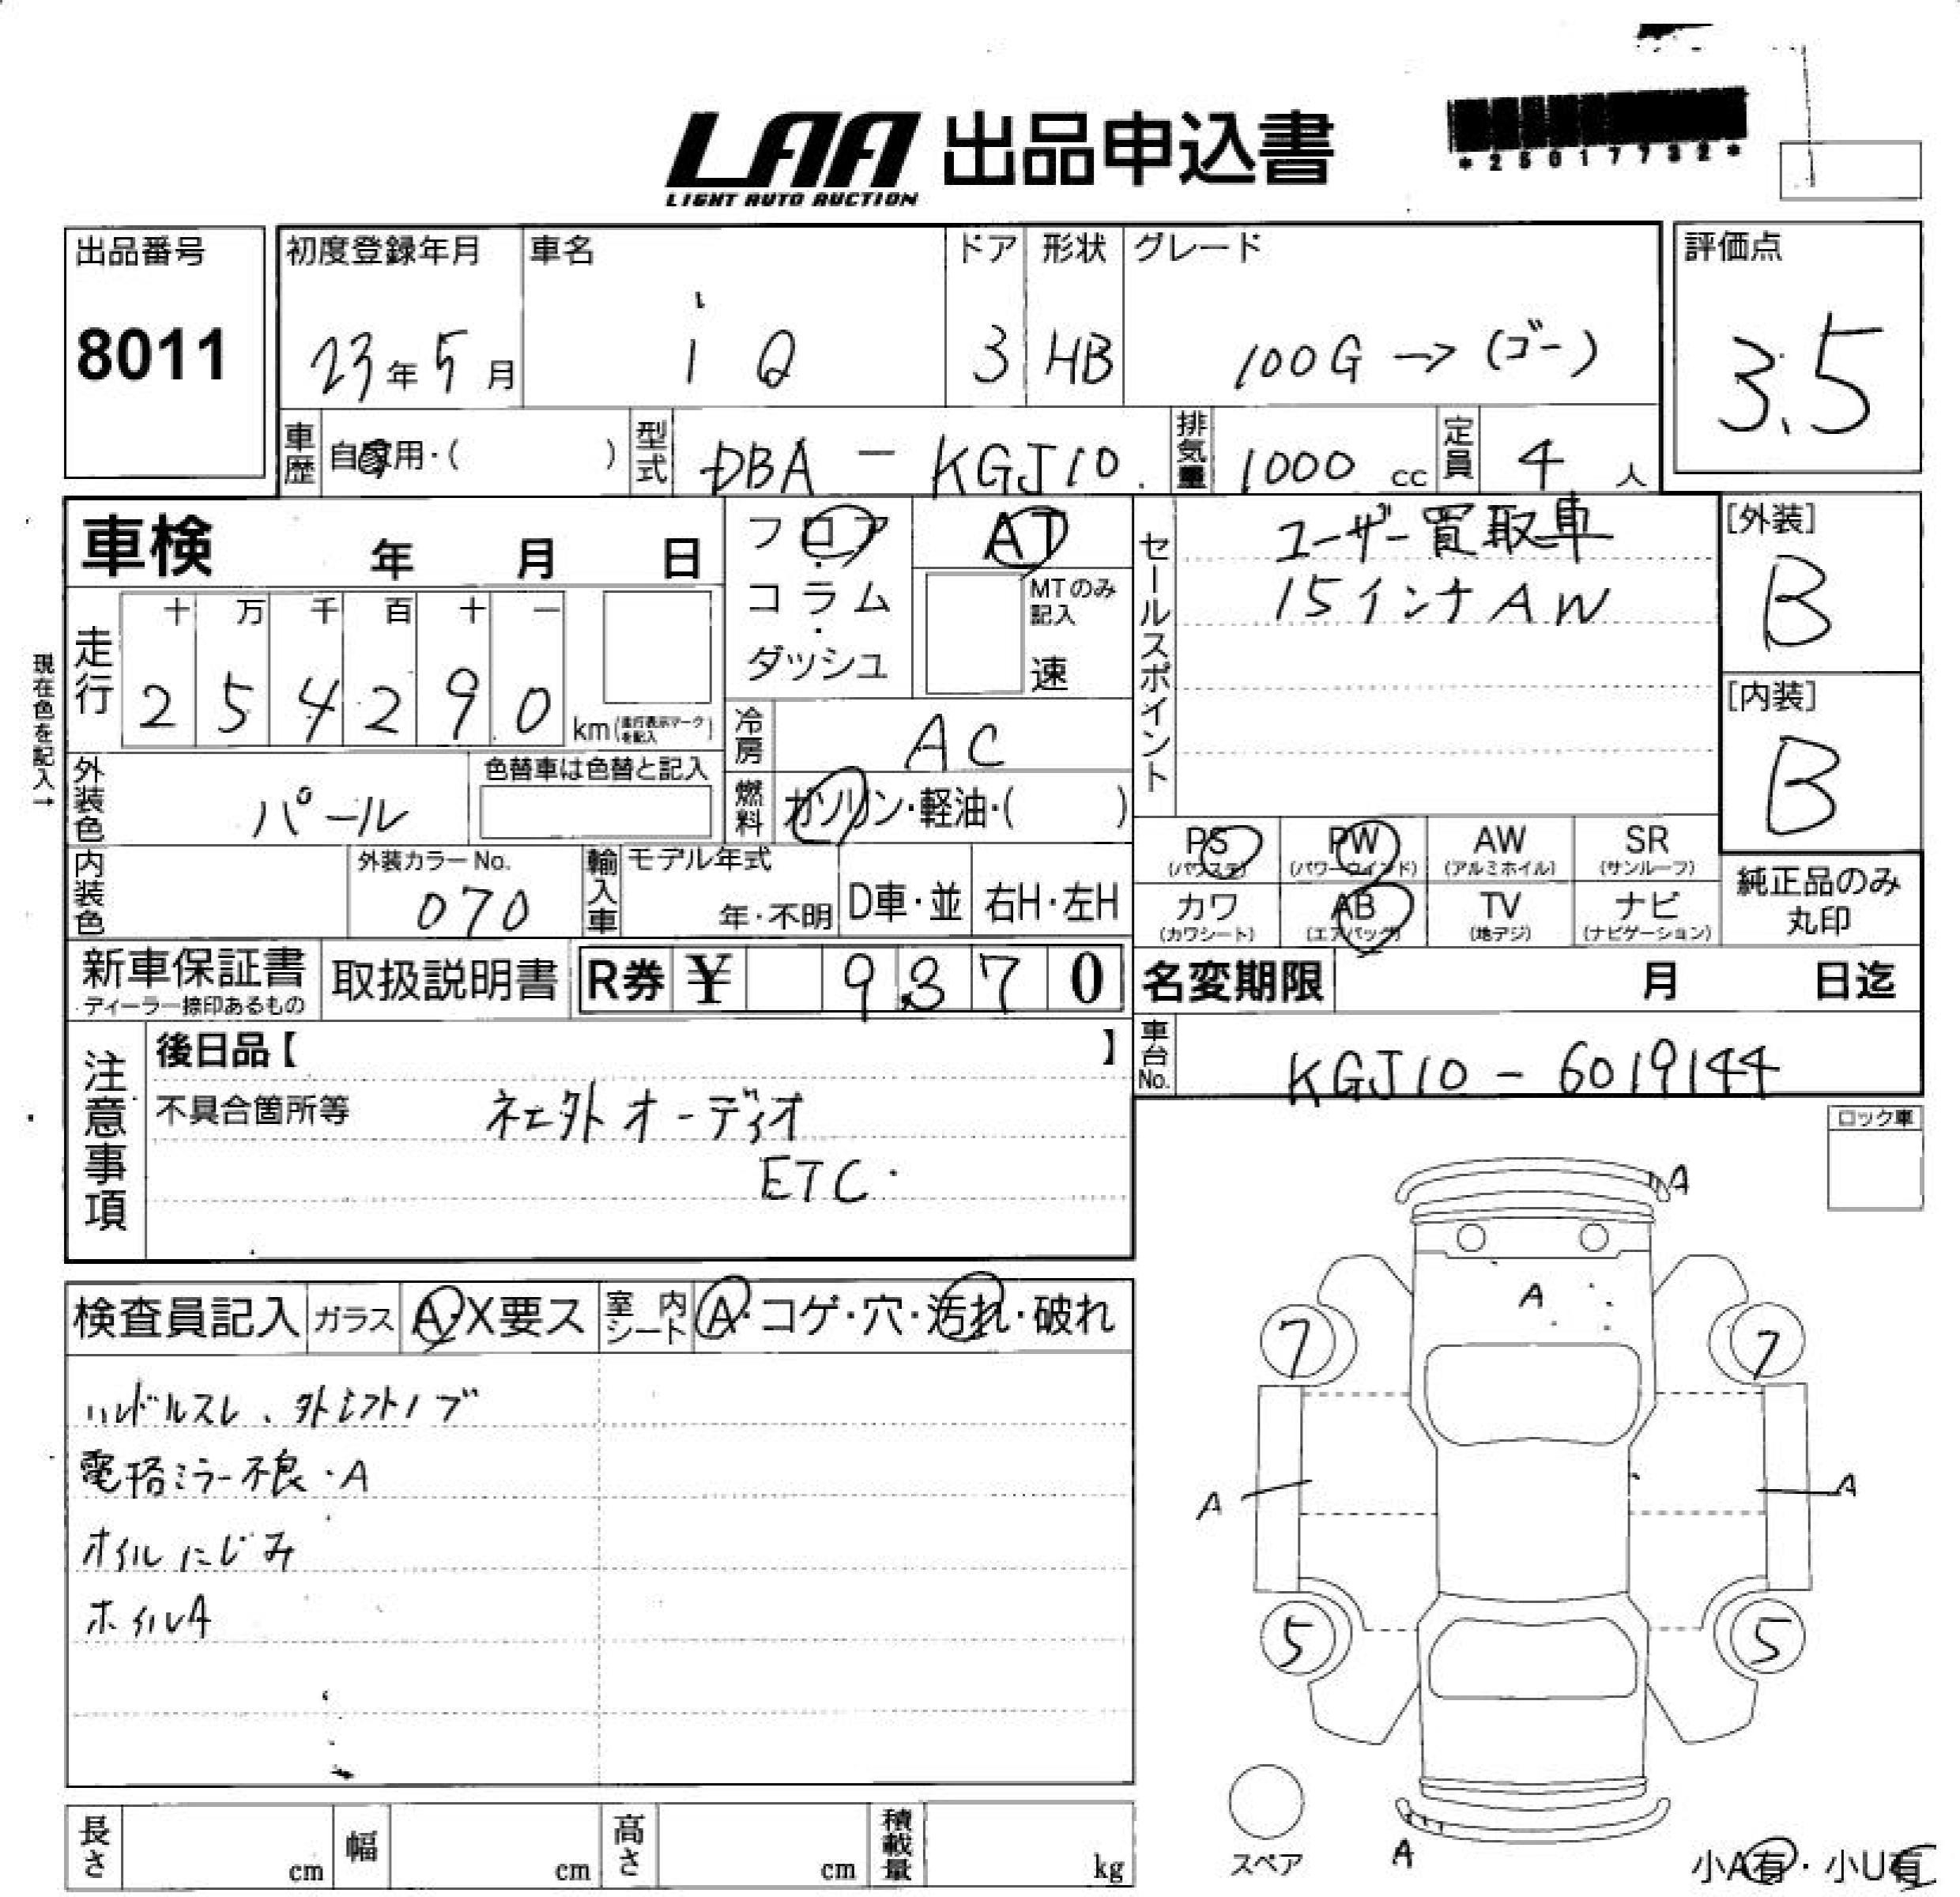 LAA 出品申込書
LIGHT AUTO AUCTION
*25017732*
出品番号
8011
初度登録年月
23年5月
車名
i
1 Q
ドア
3
形状
HB
グレード
100G → (ゴー)
評価点
3.5
車歴
自家用・( )
型式
DBA - KGJ10
排気量
1000 cc
定員
4 人
車検 年 月 日
現在色を記入→
走行
十 万 千 百 十 一
2 5 4 2 9 0 km (走行表示マークを記入)
フロア
・
コラム
・
ダッシュ
AT
MTのみ記入
速
冷房
AC
燃料
ガソリン・軽油・( )
外装色
パール
色替車は色替と記入
内装色
外装カラーNo.
070
輸入車
モデル年式
年・不明
D車・並
右H・左H
セールスポイント
ユーザー買取車
15インチAW
[外装]
B
[内装]
B
PS
(パワステ)
PW
(パワーウインド)
AW
(アルミホイル)
SR
(サンルーフ)
カワ
(カワシート)
AB
(エアバッグ)
TV
(地デジ)
ナビ
(ナビゲーション)
純正品のみ
丸印
新車保証書
ディーラー捺印あるもの
取扱説明書
R券 ¥ 9,370
名変期限 月 日迄
車台No.
KGJ10 - 6019144
注意事項
後日品【 】
不具合箇所等
社外オーディオ
ETC
ロック車
検査員記入
ガラス
A・X要ス
室内シート
A・コゲ・穴・汚れ・破れ
ハンドルスレ、外シフトノブ
電格ミラー不良・A
オイルにじみ
ホイルA
A
A
7
7
A
A
5
5
A
スペア
小A有・小U有
長さ cm
幅 cm
高さ cm
積載量 kg